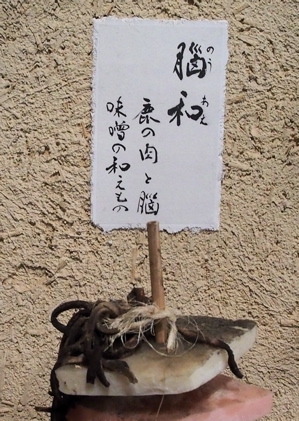 脳和
のうあえ
鹿の肉と脳
味噌の和えもの